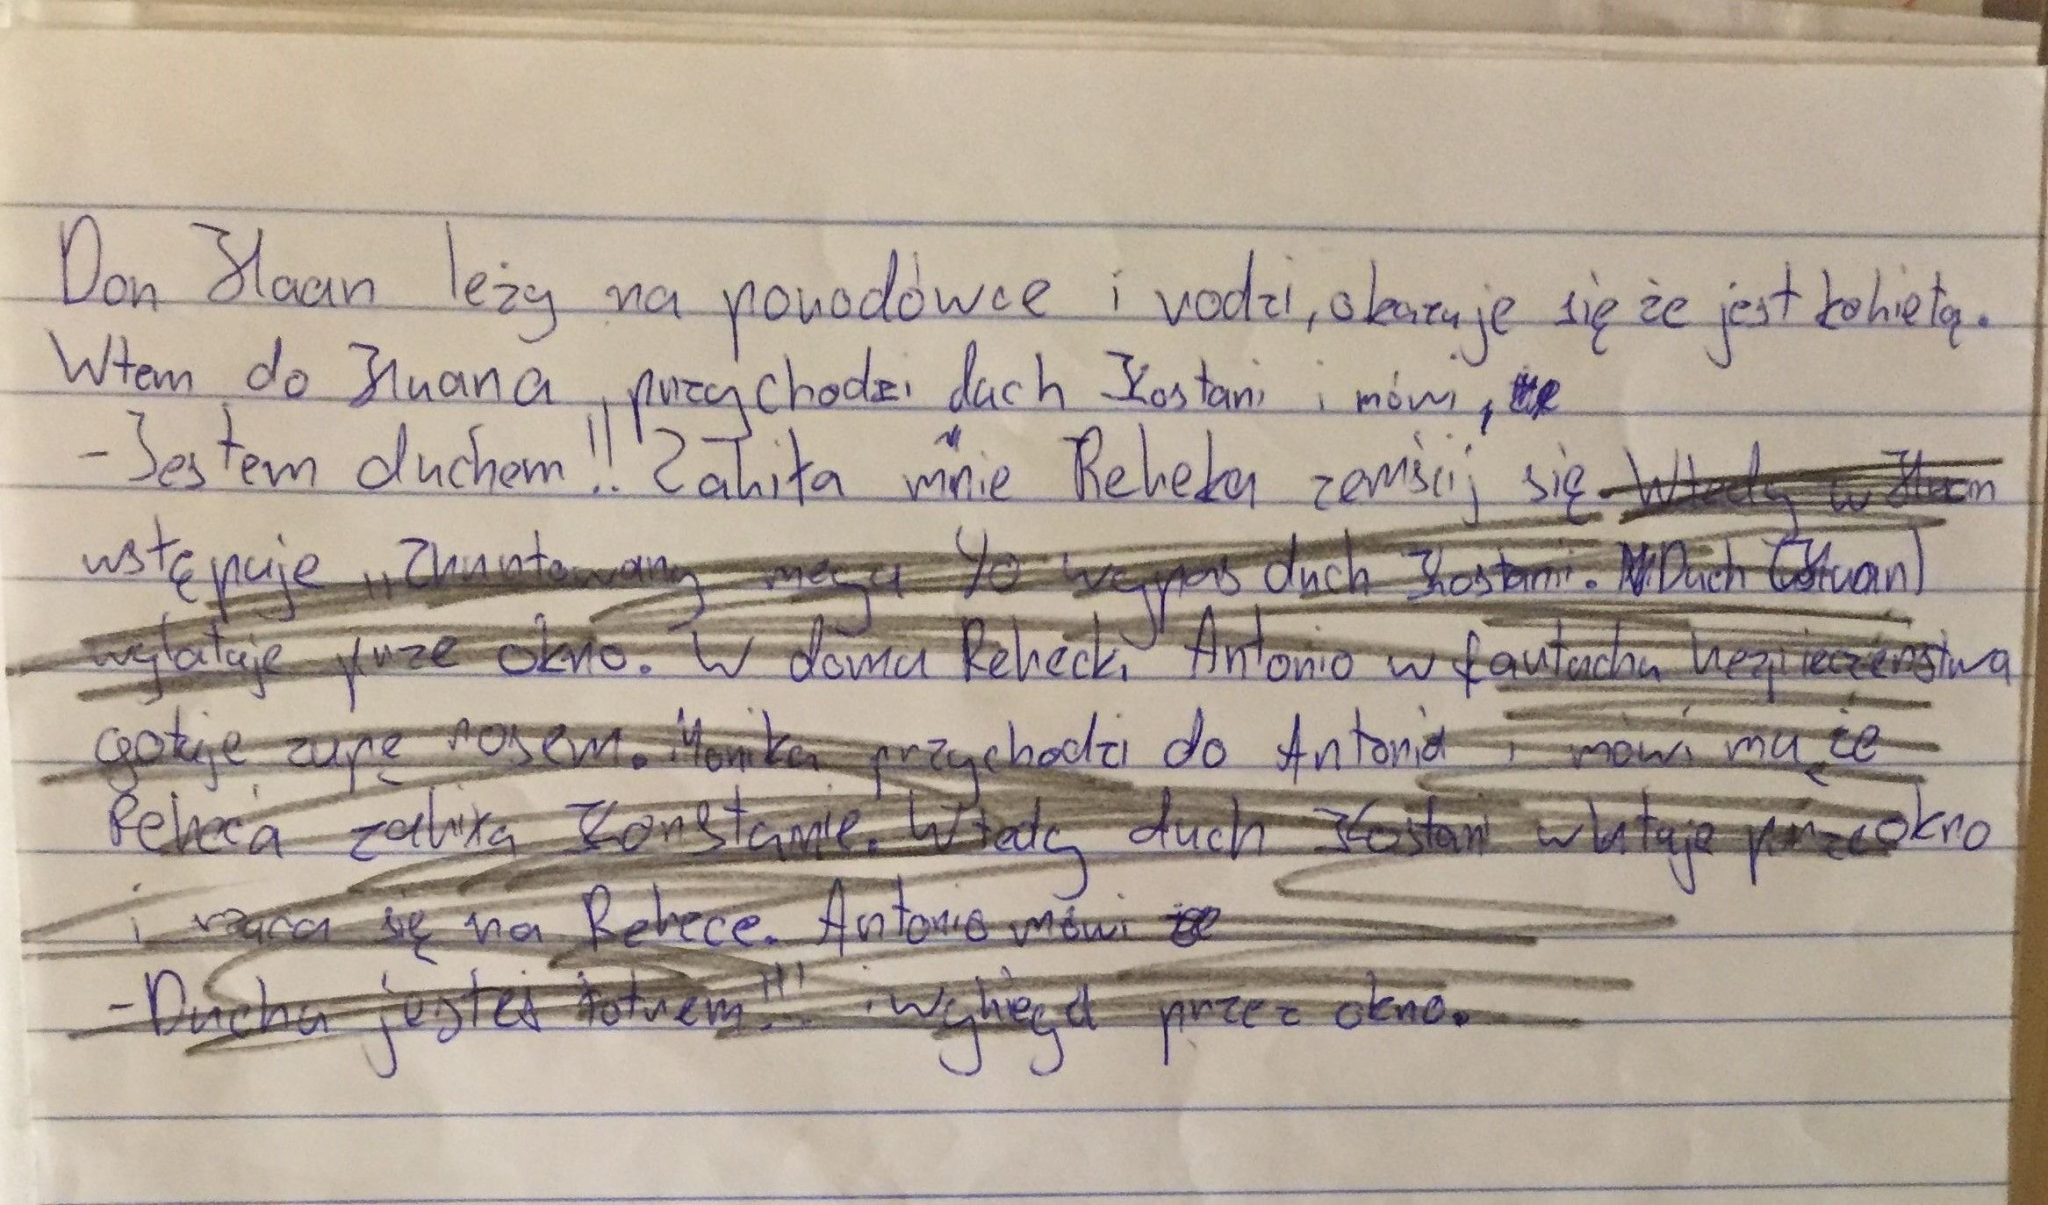 Don Huan leży na porodówce i rodzi, okazuje się że jest kobietą.
Wtem do Huana przychodzi duch Kostani i mówi, że
-Jestem duchem!! Zabiła mnie Rebeka zemścij się. Wtedy w Huan
wstępuje „Zbuntowany mega duch Kostani. Duch (Huan)
wylatuje prze okno. W domu Rebecki Antonio w fartuchu bezpieczeństwa
gotuje zupę rosem. Monika przychodzi do Antonia i mówi mu, że
Rebeca zabiła Konstanie. Wtedy duch Kostani wlatuje prze okno
i rzuca się na Rebece. Antonio mówi że
-Duchu jesteś łotrem!!! i wybiegł przez okno.